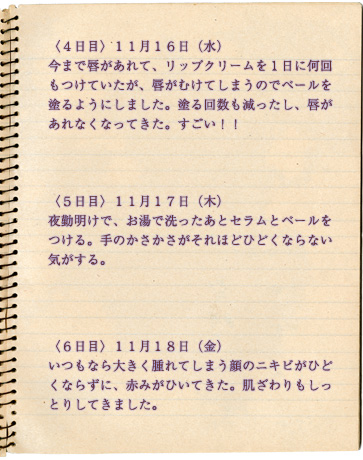 〈4日目〉11月16日（水）
今まで唇があれて、リップクリームを1日に何回
もつけていたが、唇がむけてしまうのでベールを
塗るようにしました。塗る回数も減ったし、唇が
あれなくなってきた。すごい！！
〈5日目〉11月17日（木）
夜勤明けで、お湯で洗ったあとセラムとベールを
つける。手のかさかさがそれほどひどくならない
気がする。
〈6日目〉11月18日（金）
いつもなら大きく腫れてしまう顔のニキビがひど
くならずに、赤みがひいてきた。肌ざわりもしっ
とりしてきました。